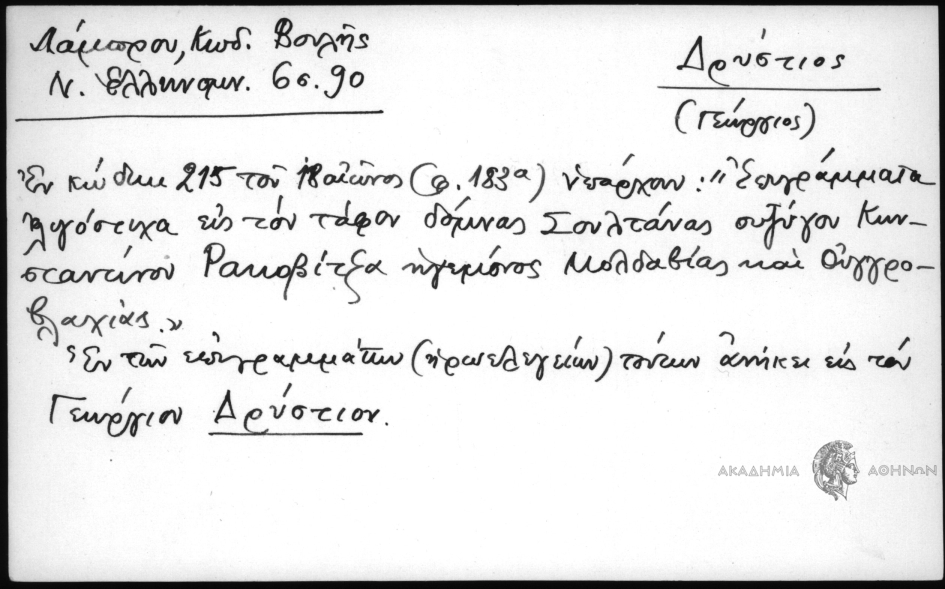 Λάμπρου, Κωδ. Βουλῆς
Ν. Ἑλληνομν. 6 σ. 90
Δρύστιος
(Γεώργιος)
Ἐν κώδικι 215 τοῦ 18 αἰῶνος (φ. 183α) ὑπάρχουν: "Ἐπιγράμματα
ὀλιγόστιχα εἰς τὸν τάφον δόμνας Σουλτάνας συζύγου Κων-
σταντίνου Ρακοβίτζα ἡγεμόνος Μολδαβίας καὶ Οὐγγρο-
βλαχίας."
Ἓν τῶν ἐπιγραμμάτων (ἡρωελεγείων) τούτων ἀνήκει εἰς τὸν
Γεώργιον Δρύστιον.
ΑΚΑΔΗΜΙΑ ΑΘΗΝΩΝ